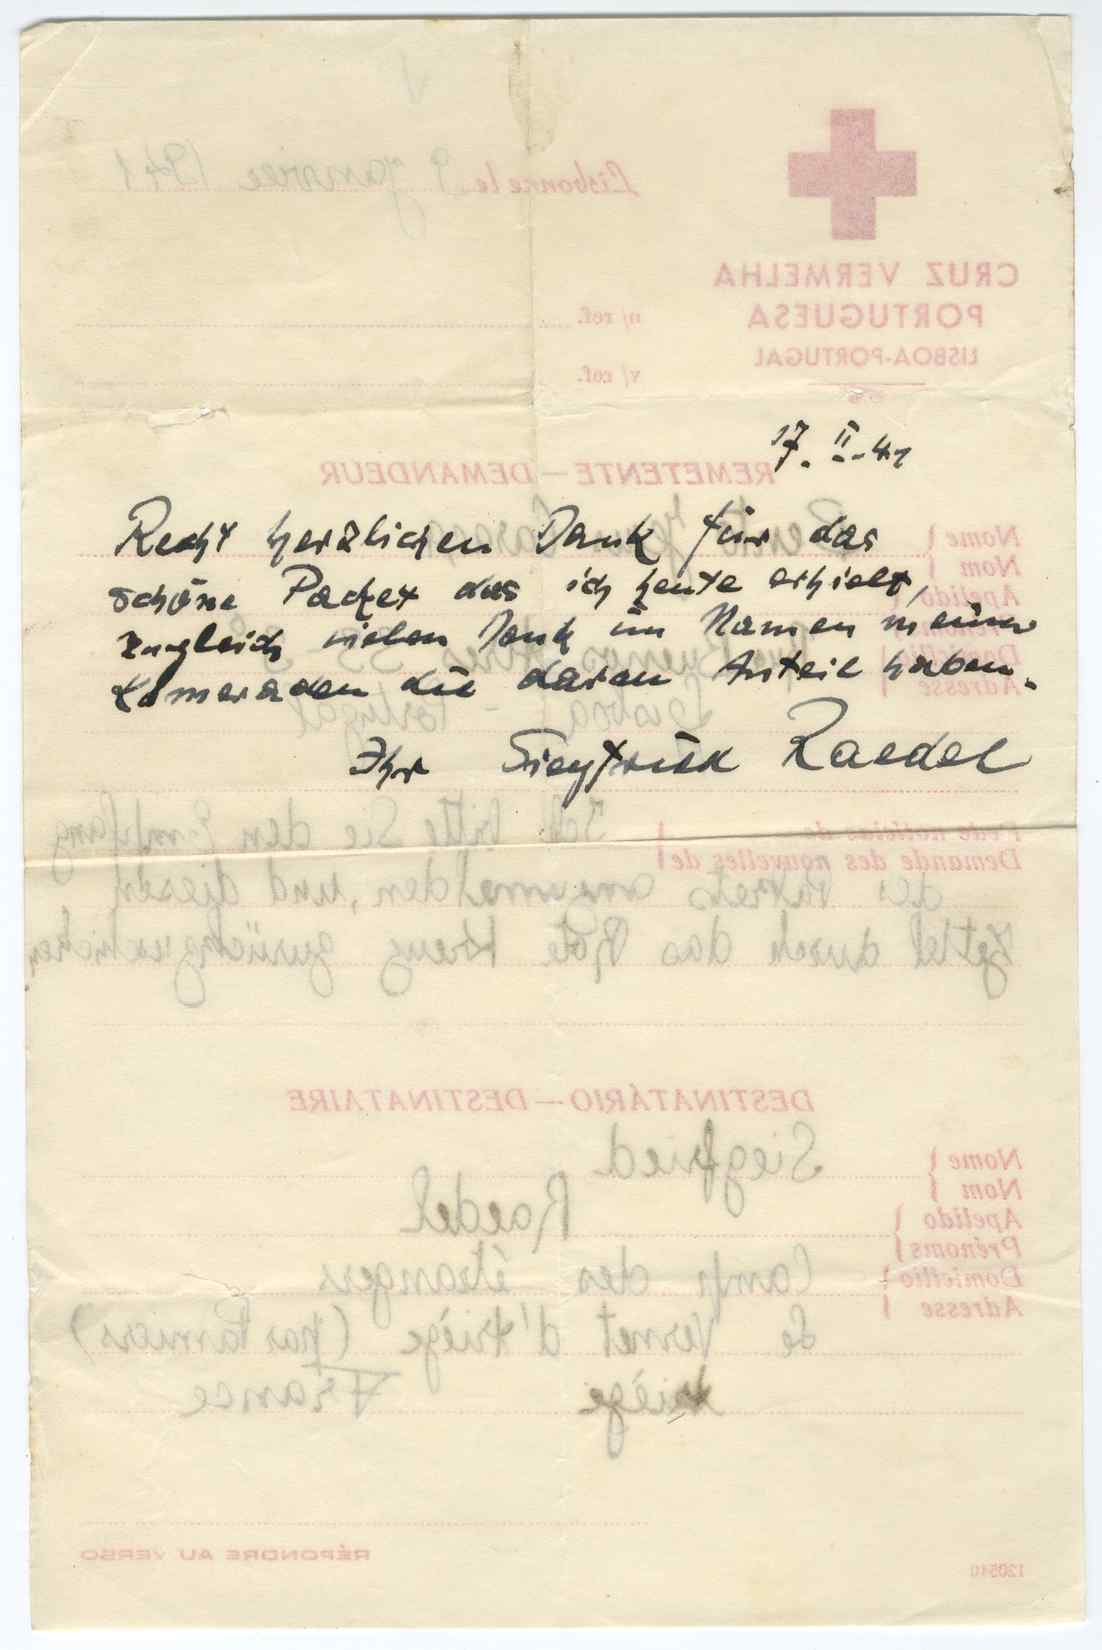 17. II. 41
Recht herzlichen Dank für das
schöne Packet das ich heute erhielt,
zugleich vielen Dank im Namen meiner
Kameraden die daran Anteil haben.
Ihr Siegfried Raedel
Lisbonne le 9 Janvier 1941
CRUZ VERMELHA
PORTUGUESA
LISBOA-PORTUGAL
n/ ref.
v/ ref.
REMETENTE — DEMANDEUR
Nome
Nom
Apelido
Prénoms
Domicilio
Adresse
Buenos Aires
Lisboa - Portugal
Pede noticias de
Demande des nouvelles de
Ich bitte Sie den Empfang
des Pakets anzumelden, und diesen
Zettel durch das Rote Kreuz zurückzuschicken
DESTINATÁRIO — DESTINATAIRE
Nome
Nom
Siegfried
Apelido
Prénoms
Raedel
Domicilio
Adresse
Camp des étrangers
Le Vernet d'Ariège (par Pamiers)
Ariège France
RÉPONDRE AU VERSO
120510